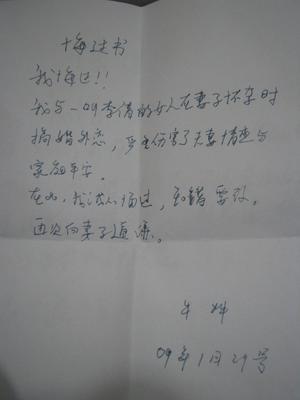 悔过书
我悔过!!
我与一叫李倩的女人在妻子怀孕时
搞婚外恋，严重伤害了夫妻情意与
家庭平安。
在此，我决心悔过，知错要改。
再次向妻子道歉。
09年1月29号